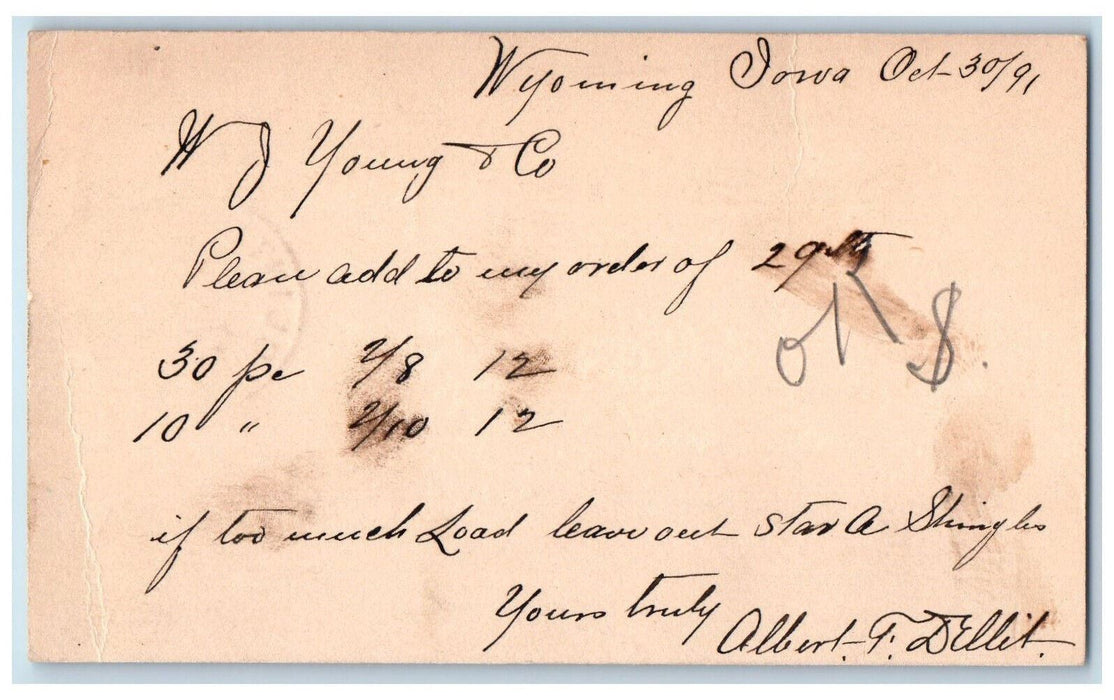 Wyoming Iowa Oct 30/91
W J Young & Co
Please add to my order of 29th
OK $.
30 pc 2/8 12
10 " 2/10 12
if too much Load leave out Star A Shingles
Yours truly
Albert F. Dellit.